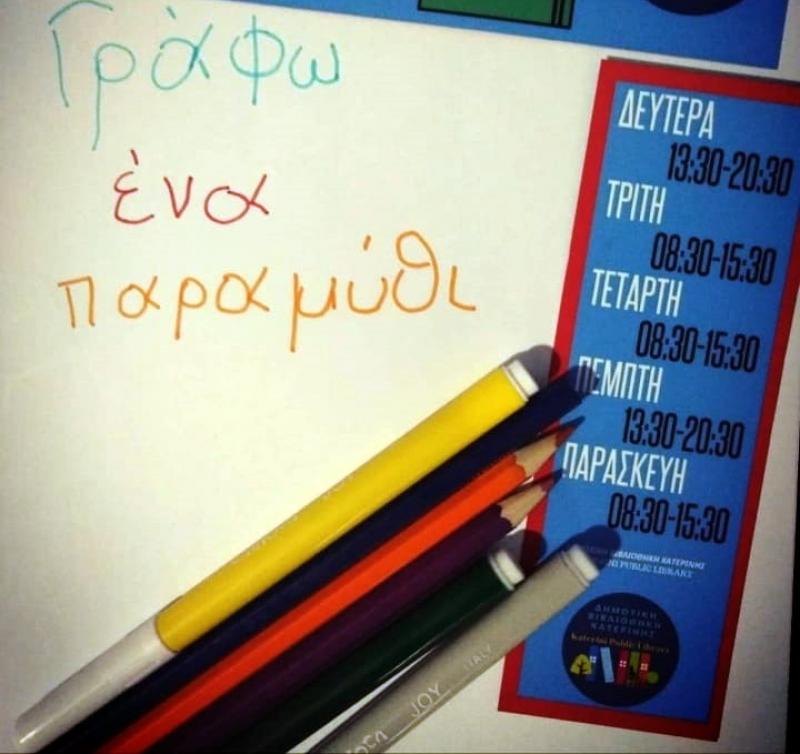 Γράφω
ένα
παραμύθι
ΔΕΥΤΕΡΑ
13:30-20:30
ΤΡΙΤΗ
08:30-15:30
ΤΕΤΑΡΤΗ
08:30-15:30
ΠΕΜΠΤΗ
13:30-20:30
ΠΑΡΑΣΚΕΥΗ
08:30-15:30
ΒΙΒΛΙΟΘΗΚΗ ΚΑΤΕΡΙΝΗΣ
PUBLIC LIBRARY
ΔΗΜΟΤΙΚΗ
ΒΙΒΛΙΟΘΗΚΗ
ΚΑΤΕΡΙΝΗΣ
Katerini Public Library
JOY ITALY